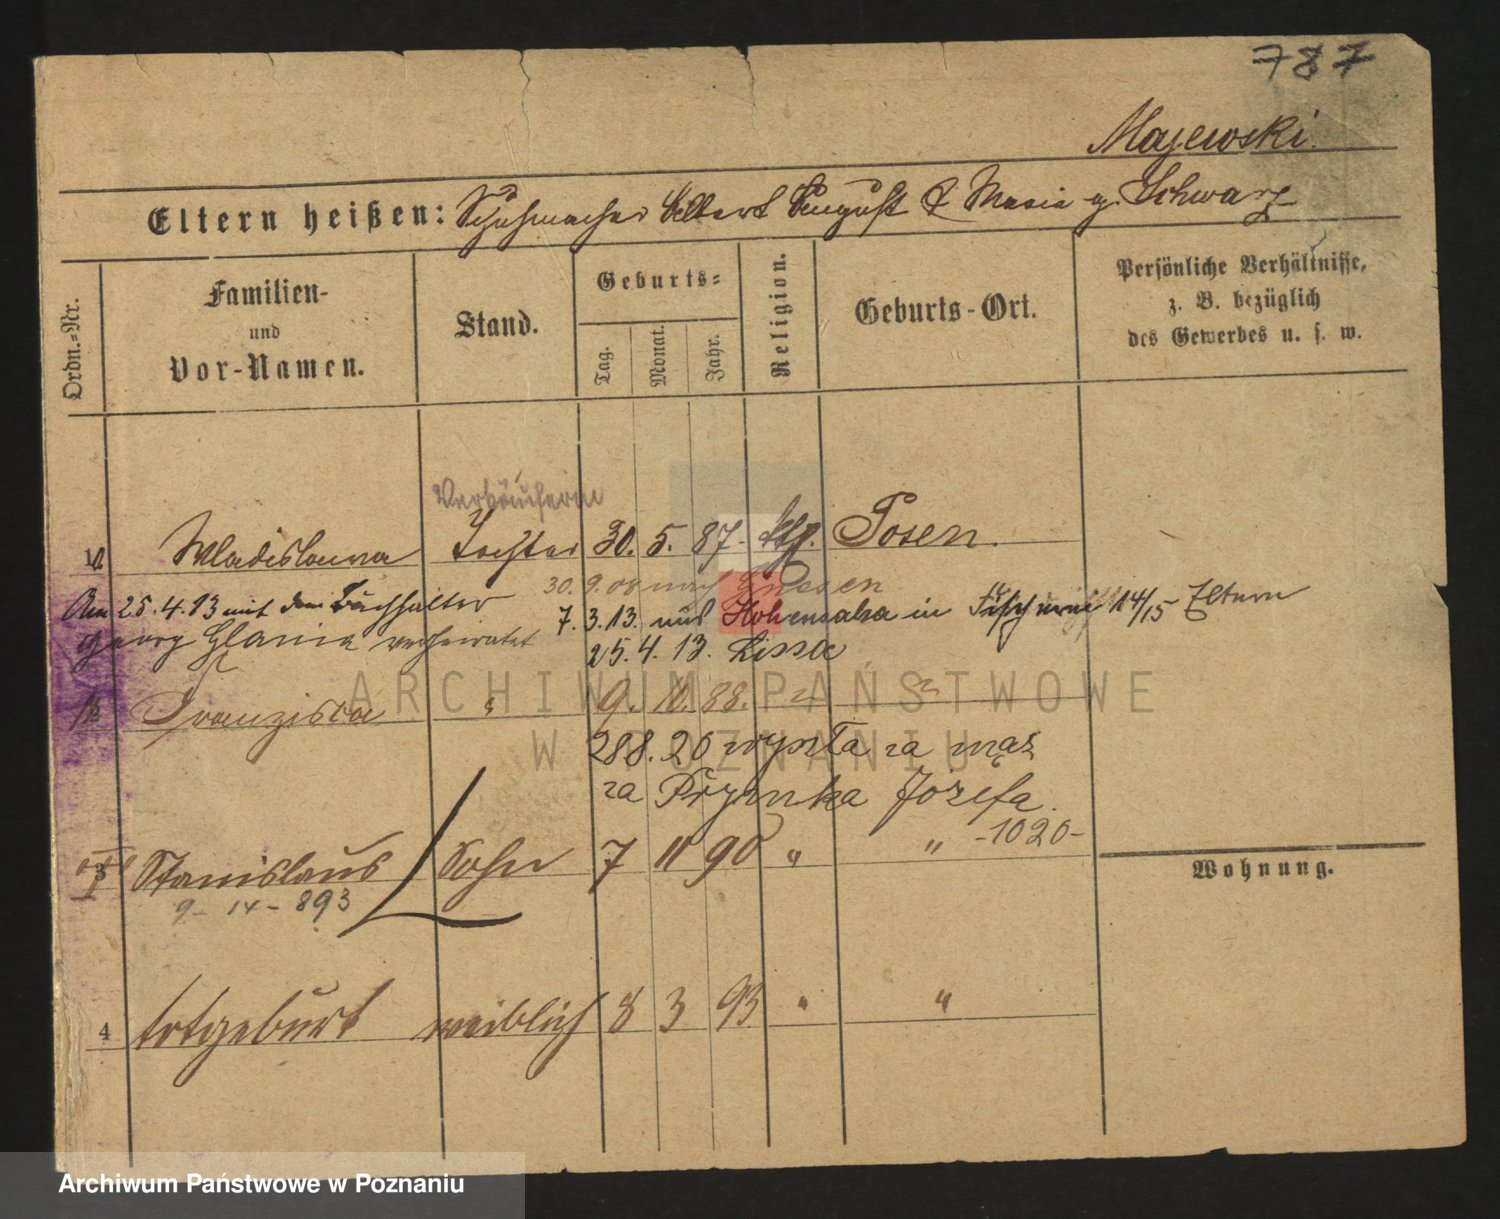 787
Majewski.
Eltern heißen: Schuhmacher August & Maria g. Schwarz
Ordn.-Nr.
Familien-
und
Vor-Namen.
Stand.
Geburts-
Tag.
Monat.
Jahr.
Religion.
Geburts-Ort.
Persönliche Verhältnisse,
z. B. bezüglich
des Gewerbes u. s. w.
Verkäuferin
1 Wladislawa Tochter 30. 5. 87. kth. Posen.
30.9.08 nach Gnesen
Am 25.4.13 mit dem Buchhalter 7.3.13. aus Hohensalza in 14/15 Eltern
Georg verheiratet 25.4.13. Lissa
2 Franziska " 9. 10. 88. " "
288.20 wyszła za mąż
za Prymka Józefa.
-1020-
3 Stanislaus Sohn 7 11 90 " "
9-14-893
Wohnung.
4 totgeburt weiblich 8 3 93 " "
ARCHIWUM PAŃSTWOWE
W POZNANIU
Archiwum Państwowe w Poznaniu